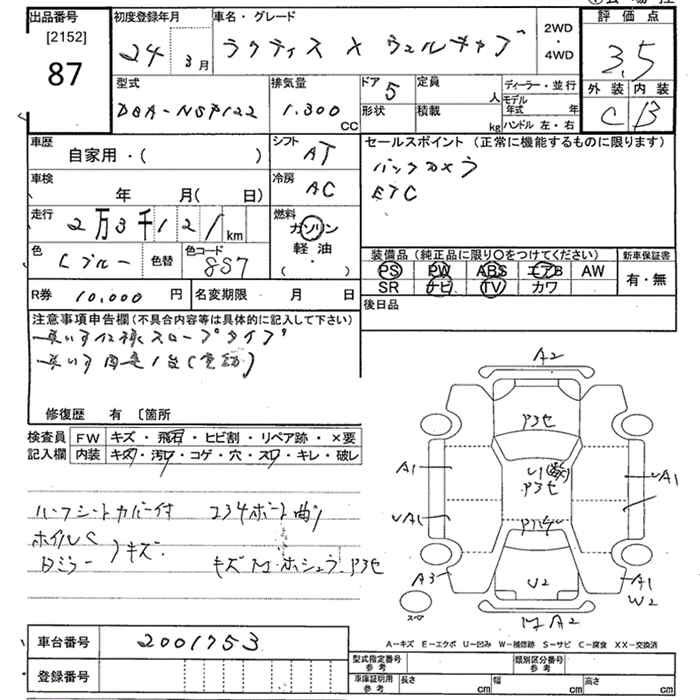 出品番号
[2152]
87
初度登録年月
24年 3月
車名・グレード
ラクティス X ウェルキャブ
2WD
・
4WD
評価点
3.5
外装 内装
C B
型式
DBA-NSP122
排気量
1.300
CC
ドア 5
形状
定員
人
積載
kg
ディーラー・並行
モデル年式 年
ハンドル 左・右
車歴
自家用・( )
シフト
AT
セールスポイント(正常に機能するものに限ります)
バックカメラ
ETC
車検
年 月( 日)
冷房
AC
走行
2万3千121km
燃料
ガソリン
軽油
( ・ )
色
Lブルー
色替
色コード
8S7
装備品(純正品に限り〇をつけてください)
PS PW ABS エアB AW
SR ナビ TV カワ
新車保証書
有・無
R券 10,000円
名変期限 月 日
後日品
注意事項申告欄(不具合内容等は具体的に記入して下さい)
車いす仕様 スロープタイプ
車いす固定1台(電動)
修復歴 有 〔箇所
検査員
記入欄
FW キズ・飛石・ヒビ割・リペア跡・×要
内装 キズ・汚レ・コゲ・穴・スレ・キレ・破レ
ハーフシートカバー付
ホイルC
Dミラー
)キズ
234ボート曲り
車台番号 2001753
登録番号
A2
A1
A1
A3
A1
W2
U2
A2
スペア
A-キズ E-エクボ U-凹み W-補修跡 S-サビ C-腐食 XX-交換済
型式指定番号
参考
類別区分番号
参考
車庫証明用
参考
長さ cm
幅 cm
高さ cm